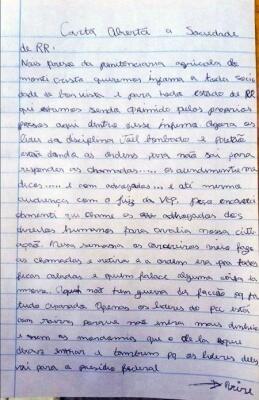 Carta Aberta a Sociedade
de RR:
Nois presos da penitenciaria agricola do
monti cristo queremos informa a toda socie
dade de boa vista e para todo estado de RR
que estamos sendo oprimido pelos proprios
presos aqui dentro esse informe agora os
lider da disciplina
estão dando as ordens pra não sai para
responder as chamadas..... os atendimentos me
dicos..... e com advogados... e até mesmo
audiença com o juiz da VEP. Peço encareci
damente que chame os advogados dos
direitos humanos para avalia nossa situ
ação. Nem os carcereiros faze
as chamadas e a ordem era pra todos
ficar calados e quem falace alguma coisa ia
morre. Aqui não tem guerra de facção pq ta
tudo separado. Apenas os lideres do pcc estão
com raiva, porque não entra mais dinheiro
e nem os mordomias que o ele la fora
deixava entrar e tambem pq os lideres deles
vai para o presidio federal